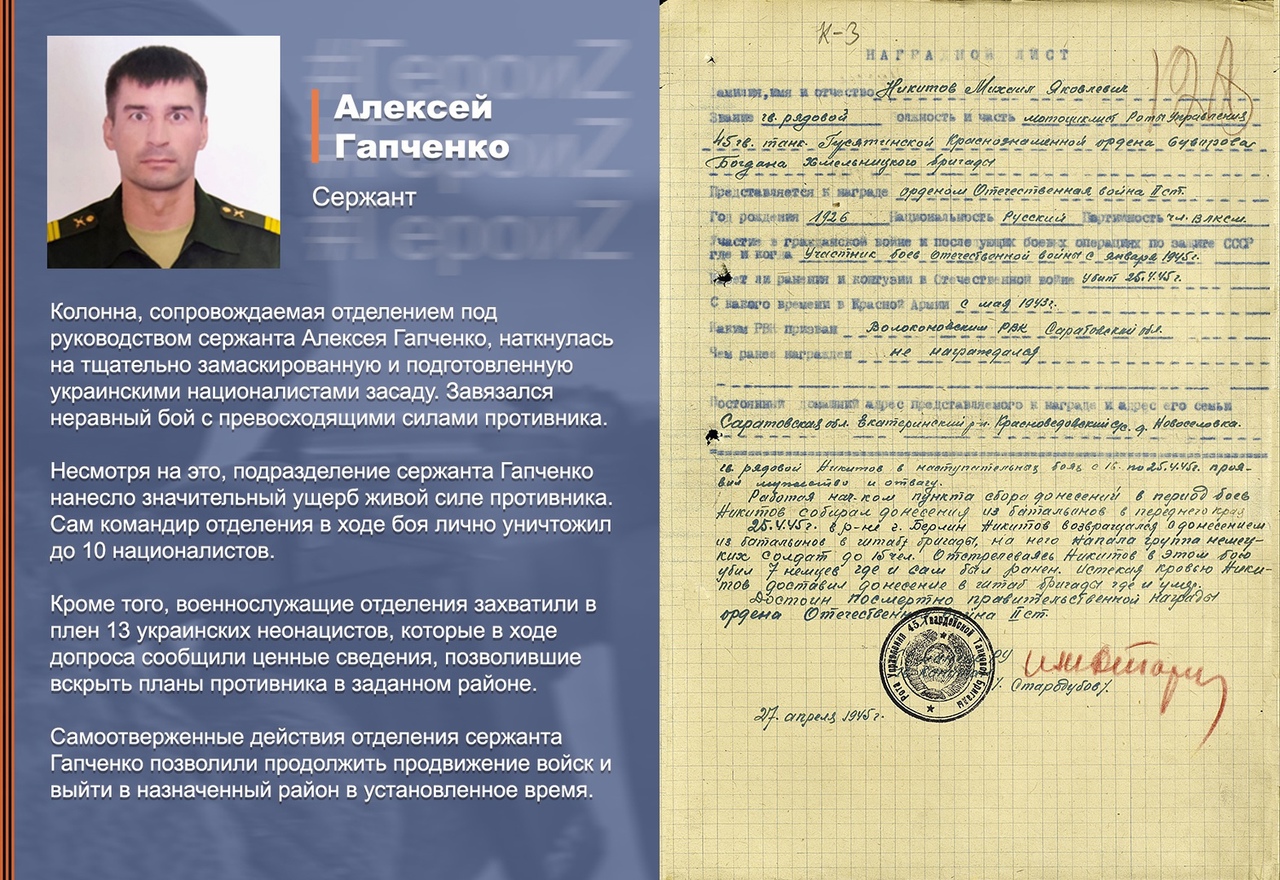 #ГероиZ
#ГероиZ
#ГероиZ
Алексей
Гапченко
Сержант
Колонна, сопровождаемая отделением под
руководством сержанта Алексея Гапченко, наткнулась
на тщательно замаскированную и подготовленную
украинскими националистами засаду. Завязался
неравный бой с превосходящими силами противника.
Несмотря на это, подразделение сержанта Гапченко
нанесло значительный ущерб живой силе противника.
Сам командир отделения в ходе боя лично уничтожил
до 10 националистов.
Кроме того, военнослужащие отделения захватили в
плен 13 украинских неонацистов, которые в ходе
допроса сообщили ценные сведения, позволившие
вскрыть планы противника в заданном районе.
Самоотверженные действия отделения сержанта
Гапченко позволили продолжить продвижение войск и
выйти в назначенный район в установленное время.
К-3
НАГРАДНОЙ ЛИСТ
амилия,имя и отчество Никитов Михаил Яковлевич
Звание гв. рядовой олжность и часть мотоциклист Роты Управления
45 гв. танк. Гусятинской Краснознаменной ордена Суворова
Богдана Хмельницкого бригады
Представляется к награде орденом Отечественная война II ст.
Год рождения 1926 Национальность Русский Партийность чл. ВЛКСМ.
Участие в гражданской войне и последующих боевых операциях по защите СССР
где и когда Участник боев Отечественной войны с января 1945г.
меет ли ранения и контузии в Отечественной войне убит 25.4.45г.
С какого времени в Красной Армии с мая 1943г.
Каким РВК призван Волоконовским РВК Саратовской обл.
Чем ранее награжден не награждался
Постоянный домашний адрес представляемого к награде и адрес его семьи
Саратовская обл. Екатеринский р-н. Красноведовский с/с. д. Новоселовка.
гв. рядовой Никитов в наступательных боях с 16. по 25.4.45г. проя-
вил мужество и отвагу.
Работая нач-ком пункта сбора донесений в период боев
Никитов собирал донесения из батальонов в переднего края
25.4.45г. в р-не г. Берлин Никитов возвращался с донесением
из батальонов в штаб бригады, на него напала группа немец-
ких солдат до 15 чел. Отстреливаясь Никитов в этом бою
убил 7 немцев где и сам был ранен. Истекая кровью Ники-
тов доставил донесение в штаб бригады где и умер.
Достоин Посмертно правительственной награды
ордена Отечественная война II ст.
Рота Управления 45 Гвардейской Танковой Бригады
/Стародубов/.
27. апреля 1945г.